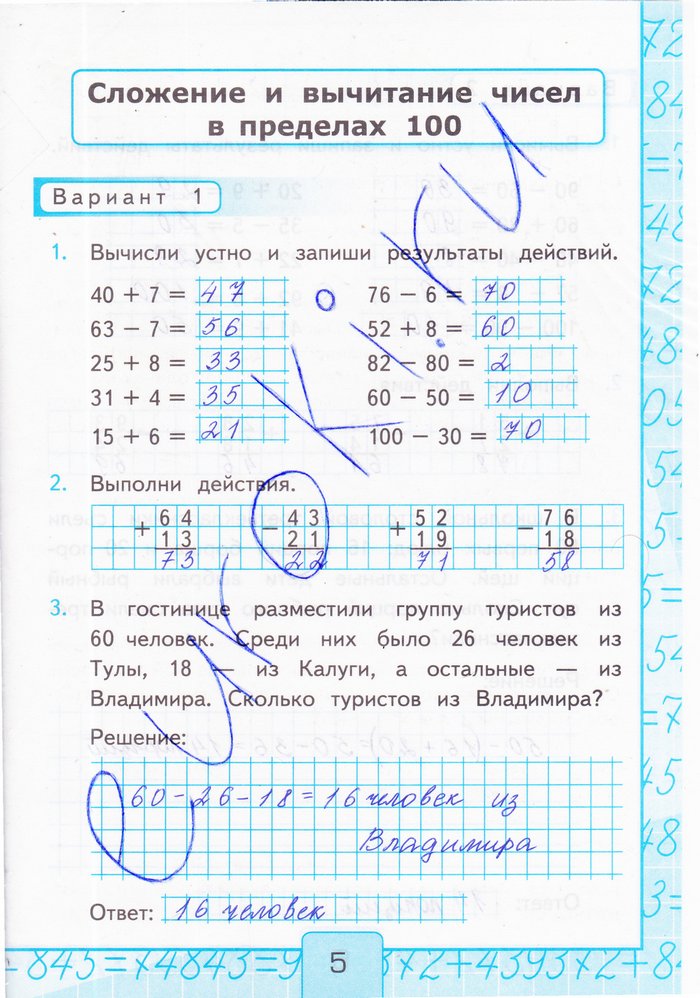 Сложение и вычитание чисел
в пределах 100
Вариант 1
1. Вычисли устно и запиши результаты действий.
40 + 7 = 47 76 − 6 = 70
63 − 7 = 56 52 + 8 = 60
25 + 8 = 33 82 − 80 = 2
31 + 4 = 35 60 − 50 = 10
15 + 6 = 21 100 − 30 = 70
2. Выполни действия.
+ 64 − 43 + 52 − 76
13 21 19 18
73 22 71 58
3. В гостинице разместили группу туристов из
60 человек. Среди них было 26 человек из
Тулы, 18 — из Калуги, а остальные — из
Владимира. Сколько туристов из Владимира?
Решение:
60 - 26 - 18 = 16 человек из
Владимира
Ответ: 16 человек
5